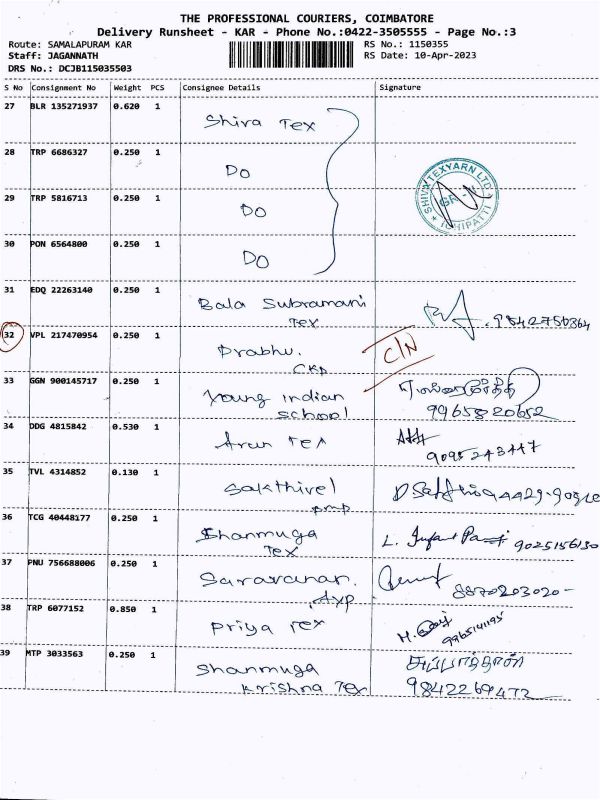 THE PROFESSIONAL COURIERS, COIMBATORE
Delivery Runsheet - KAR - Phone No.:0422-3505555 - Page No.:3
Route: SAMALAPURAM KAR RS No.: 1150355
Staff: JAGANNATH RS Date: 10-Apr-2023
DRS No.: DCJB115035503
S No Consignment No Weight PCS Consignee Details Signature
27 BLR 135271937 0.620 1 Shiva Tex
28 TRP 6686327 0.250 1 Do
SHIVA TEXYARN LTD
ICHIPATTI
29 TRP 5816713 0.250 1 Do
30 PON 6564800 0.250 1 Do
31 EDQ 22263140 0.250 1 Bala Subramani
Tex
32 VPL 217470954 0.250 1 Prabhu. C/N
CKP
33 GGN 900145717 0.250 1 Young indian
School 9965820652
34 DDG 4815842 0.530 1 Arun Tex
9095243447
35 TVL 4314852 0.130 1 Sakthivel
36 TCG 40448177 0.250 1 Shanmuga
Tex 9025156130
37 PNU 756688006 0.250 1 Saravanan.
Ayp 8870203020-
38 TRP 6077152 0.850 1 Priya Tex
39 MTP 3033563 0.250 1 Shanmuga
Krishna Tex 9842269472